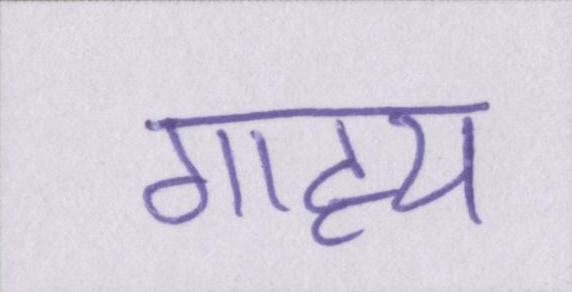 गाह्य